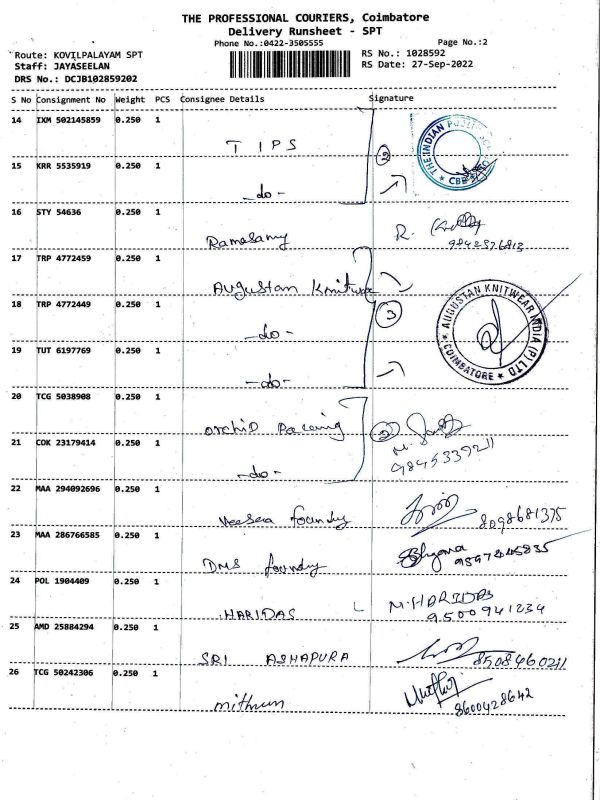 THE PROFESSIONAL COURIERS, Coimbatore
Delivery Runsheet - SPT
Phone No.:0422-3505555
Page No.:2
Route: KOVILPALAYAM SPT
RS No.: 1028592
Staff: JAYASEELAN
RS Date: 27-Sep-2022
DRS No.: DCJB102859202
S No Consignment No Weight PCS Consignee Details Signature
14 IXM 502145859 0.250 1
TIPS
2
THE INDIAN
CBE
15 KRR 5535919 0.250 1
-do-
16 STY 54636 0.250 1
Ramasamy R.
17 TRP 4772459 0.250 1
Augustan Knitwear
18 TRP 4772449 0.250 1
-do-
3
AUGUSTAN KNITWEAR INDIA (P) LTD
* COIMBATORE *
19 TUT 6197769 0.250 1
-do-
20 TCG 5038908 0.250 1
Orchid
2
21 COK 23179414 0.250 1
-do-
22 MAA 294092696 0.250 1
foundry 8098681375
23 MAA 286766585 0.250 1
DMS foundry
24 POL 1904409 0.250 1
HARIDAS M.HARIDAS
9500941234
25 AMD 25884294 0.250 1
SRI ASHAPURA 8508460211
26 TCG 50242306 0.250 1
mithun
8600428642